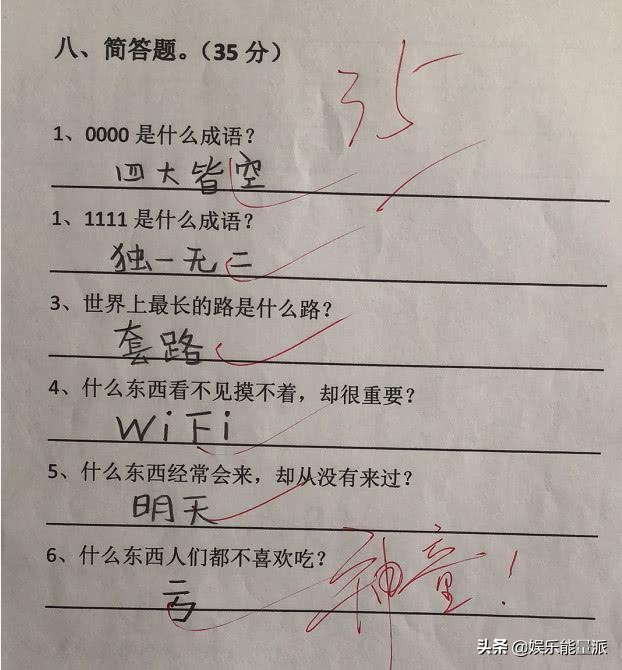 八、简答题。（35 分）
35
1、0000 是什么成语？
四大皆空
1、1111 是什么成语？
独一无二
3、世界上最长的路是什么路？
套路
4、什么东西看不见摸不着，却很重要？
WiFi
5、什么东西经常会来，却从没有来过？
明天
6、什么东西人们都不喜欢吃？
亏
神童！
头条 @娱乐能量派